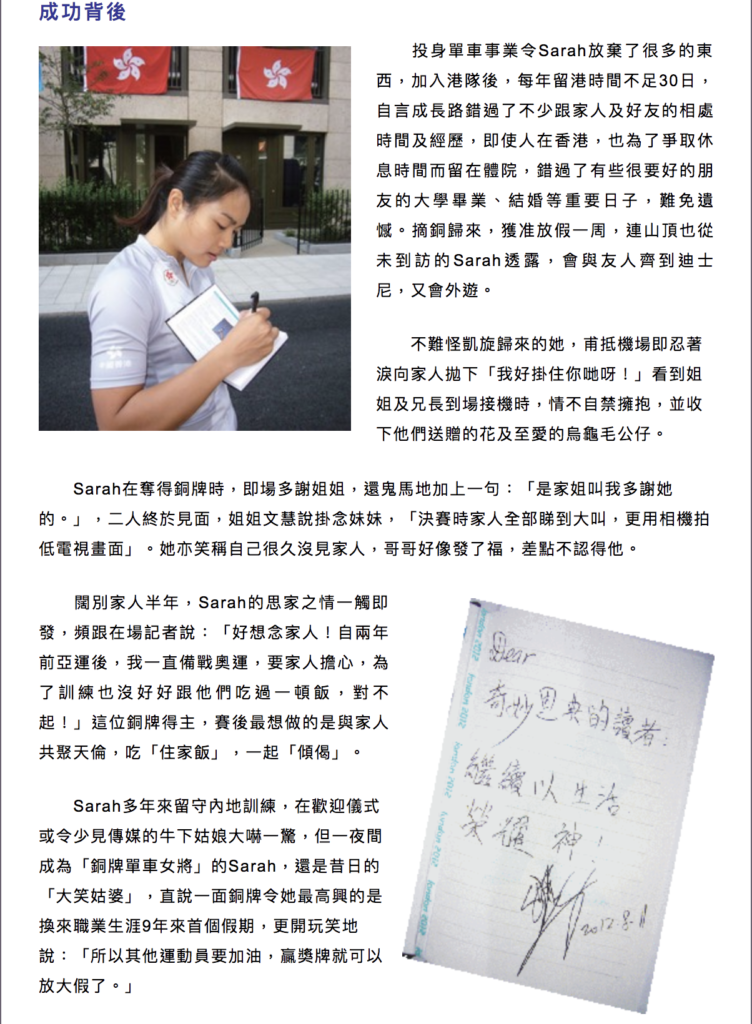 成功背後
投身單車事業令Sarah放棄了很多的東
西，加入港隊後，每年留港時間不足30日，
自言成長路錯過了不少跟家人及好友的相處
時間及經歷，即使人在香港，也為了爭取休
息時間而留在體院，錯過了有些很要好的朋
友的大學畢業、結婚等重要日子，難免遺
憾。摘銅歸來，獲准放假一周，連山頂也從
未到訪的Sarah透露，會與友人齊到迪士
尼，又會外遊。
不難怪凱旋歸來的她，甫抵機場即忍著
淚向家人拋下「我好掛住你哋呀！」看到姐
姐及兄長到場接機時，情不自禁擁抱，並收
下他們送贈的花及至愛的烏龜毛公仔。
Sarah在奪得銅牌時，即場多謝姐姐，還鬼馬地加上一句：「是家姐叫我多謝她
的。」，二人終於見面，姐姐文慧說掛念妹妹，「決賽時家人全部睇到大叫，更用相機拍
低電視畫面」。她亦笑稱自己很久沒見家人，哥哥好像發了福，差點不認得他。
闊別家人半年，Sarah的思家之情一觸即
發，頻跟在場記者說：「好想念家人！自兩年
前亞運後，我一直備戰奧運，要家人擔心，為
了訓練也沒好好跟他們吃過一頓飯，對不
起！」這位銅牌得主，賽後最想做的是與家人
共聚天倫，吃「住家飯」，一起「傾偈」。
Sarah多年來留守內地訓練，在歡迎儀式
或令少見傳媒的牛下姑娘大嚇一驚，但一夜間
成為「銅牌單車女將」的Sarah，還是昔日的
「大笑姑婆」，直說一面銅牌令她最高興的是
換來職業生涯9年來首個假期，更開玩笑地
說：「所以其他運動員要加油，贏獎牌就可以
放大假了。」
Dear
奇妙恩典的讀者：
繼續以生活
榮耀 神！
london 2012